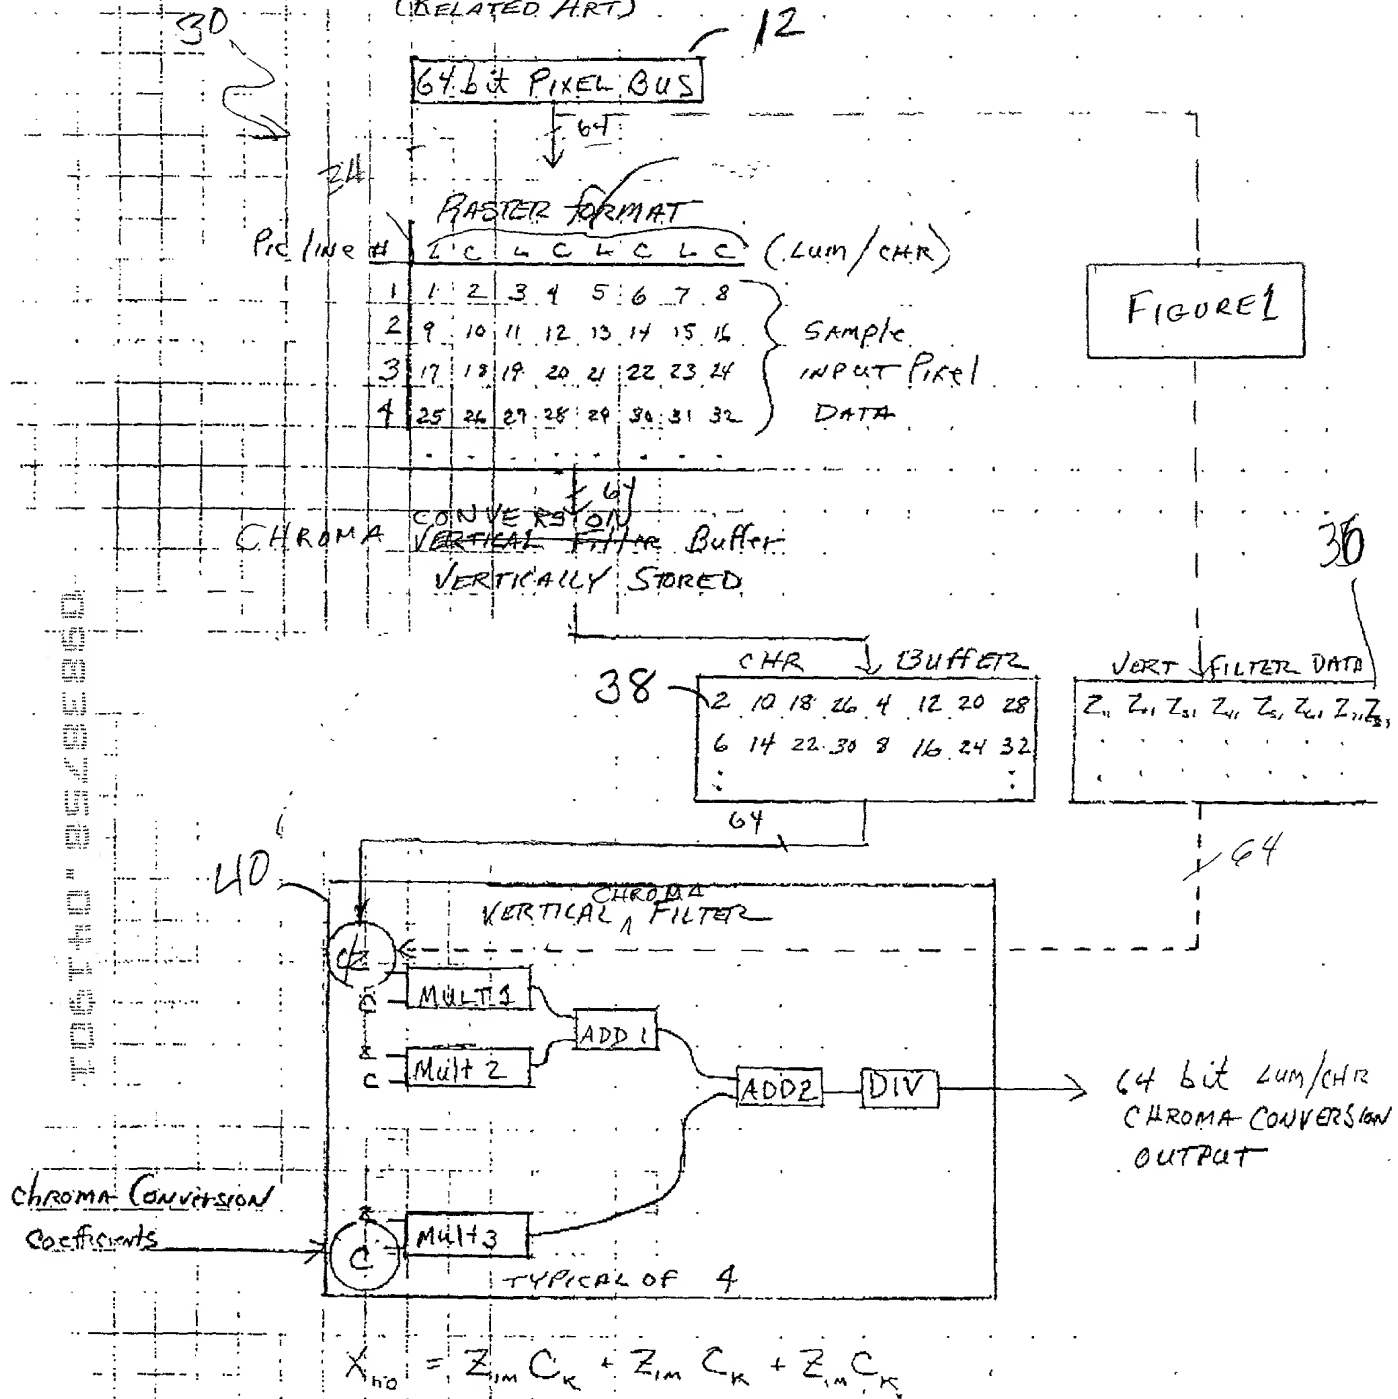 (RELATED ART)
30
12
64 bit PIXEL BUS
64
34
RASTER FORMAT
Pic line # L C L C L C L C (LUM/CHR)
1 1 2 3 4 5 6 7 8
2 9 10 11 12 13 14 15 16
3 17 18 19 20 21 22 23 24
4 25 26 27 28 29 30 31 32
SAMPLE
INPUT Pixel
DATA
FIGURE 1
64
CONVERSION
CHROMA VERTICAL Filter Buffer
VERTICALLY STORED
36
CHR BUFFER
38
2 10 18 26 4 12 20 28
6 14 22 30 8 16 24 32
VERT FILTER DATA
64
64
40
CHROMA
VERTICAL FILTER
MULT 1
ADD 1
Mult 2
C
ADD2
DIV
64 bit LUM/CHR
CHROMA CONVERSION
OUTPUT
CHROMA CONVERSION
Coefficients
C
Mult 3
TYPICAL OF 4
= Z C + Z C + Z C
10051340.857838550